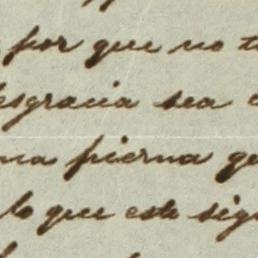 por que no t
esgracia sea
na pierna qu
lo que este sig